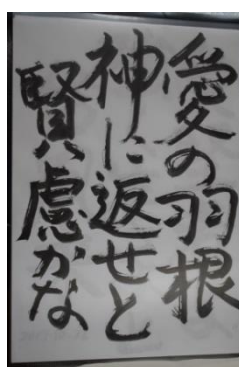 愛の羽根
神に返せと
賢慮かな